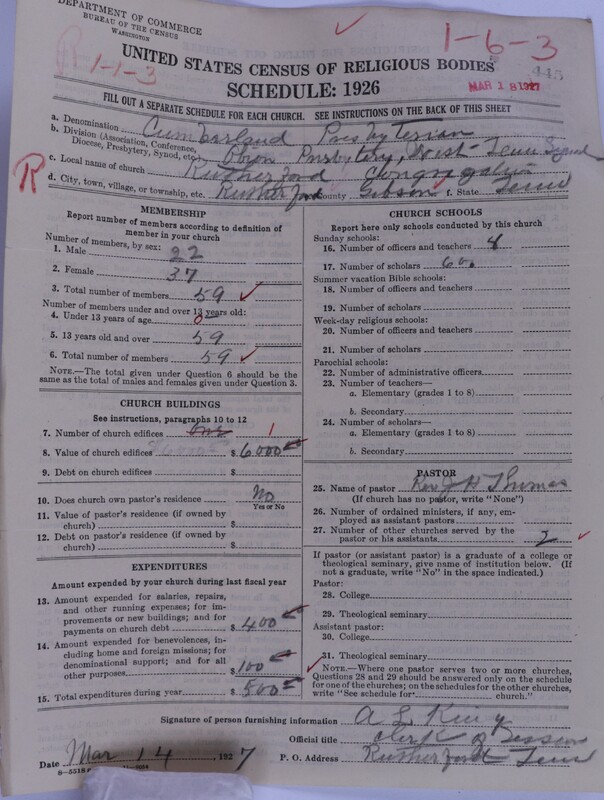 DEPARTMENT OF COMMERCE
BUREAU OF THE CENSUS
WASHINGTON
1-6-3
R 1-1-3
UNITED STATES CENSUS OF RELIGIOUS BODIES
445
MAR 18 1927
SCHEDULE: 1926
FILL OUT A SEPARATE SCHEDULE FOR EACH CHURCH. SEE INSTRUCTIONS ON THE BACK OF THIS SHEET
a. Denomination Cumberland Presbyterian
b. Division (Association, Conference, Diocese, Presbytery, Synod, etc.) Obion Presbytery, West Tenn Synod
c. Local name of church Rutherford Congregation
R
d. City, town, village, or township, etc. Rutherford County Gibson f. State Tenn
MEMBERSHIP
Report number of members according to definition of
member in your church
Number of members, by sex:
1. Male 22
2. Female 37
3. Total number of members 59
Number of members under and over 13 years old:
4. Under 13 years of age 0
5. 13 years old and over 59
6. Total number of members 59
NOTE.—The total given under Question 6 should be the
same as the total of males and females given under Question 3.
CHURCH BUILDINGS
See instructions, paragraphs 10 to 12
7. Number of church edifices one 1
8. Value of church edifices $ 6000
9. Debt on church edifices $
10. Does church own pastor's residence No
Yes or No
11. Value of pastor's residence (if owned by
church) $
12. Debt on pastor's residence (if owned by
church) $
EXPENDITURES
Amount expended by your church during last fiscal year
13. Amount expended for salaries, repairs,
and other running expenses; for im-
provements or new buildings; and for
payments on church debt $ 400
14. Amount expended for benevolences, in-
cluding home and foreign missions; for
denominational support; and for all
other purposes $ 100
15. Total expenditures during year $ 500
CHURCH SCHOOLS
Report here only schools conducted by this church
Sunday schools:
16. Number of officers and teachers 8
17. Number of scholars 60
Summer vacation Bible schools:
18. Number of officers and teachers
19. Number of scholars
Week-day religious schools:
20. Number of officers and teachers
21. Number of scholars
Parochial schools:
22. Number of administrative officers
23. Number of teachers—
a. Elementary (grades 1 to 8)
b. Secondary
24. Number of scholars—
a. Elementary (grades 1 to 8)
b. Secondary
PASTOR
25. Name of pastor Rev J H Thomas
(If church has no pastor, write "None")
26. Number of ordained ministers, if any, em-
ployed as assistant pastors
27. Number of other churches served by the
pastor or his assistants 2
If pastor (or assistant pastor) is a graduate of a college or
theological seminary, give name of institution below. (If
not a graduate, write "No" in the space indicated.)
Pastor:
28. College
29. Theological seminary
Assistant pastor:
30. College
31. Theological seminary
NOTE.—Where one pastor serves two or more churches,
Questions 28 and 29 should be answered only on the schedule
for one of the churches; on the schedules for the other churches,
write "See schedule for church."
Signature of person furnishing information A L King
Official title Clerk of Session
Date Mar 14, 1927 P. O. Address Rutherford Tenn